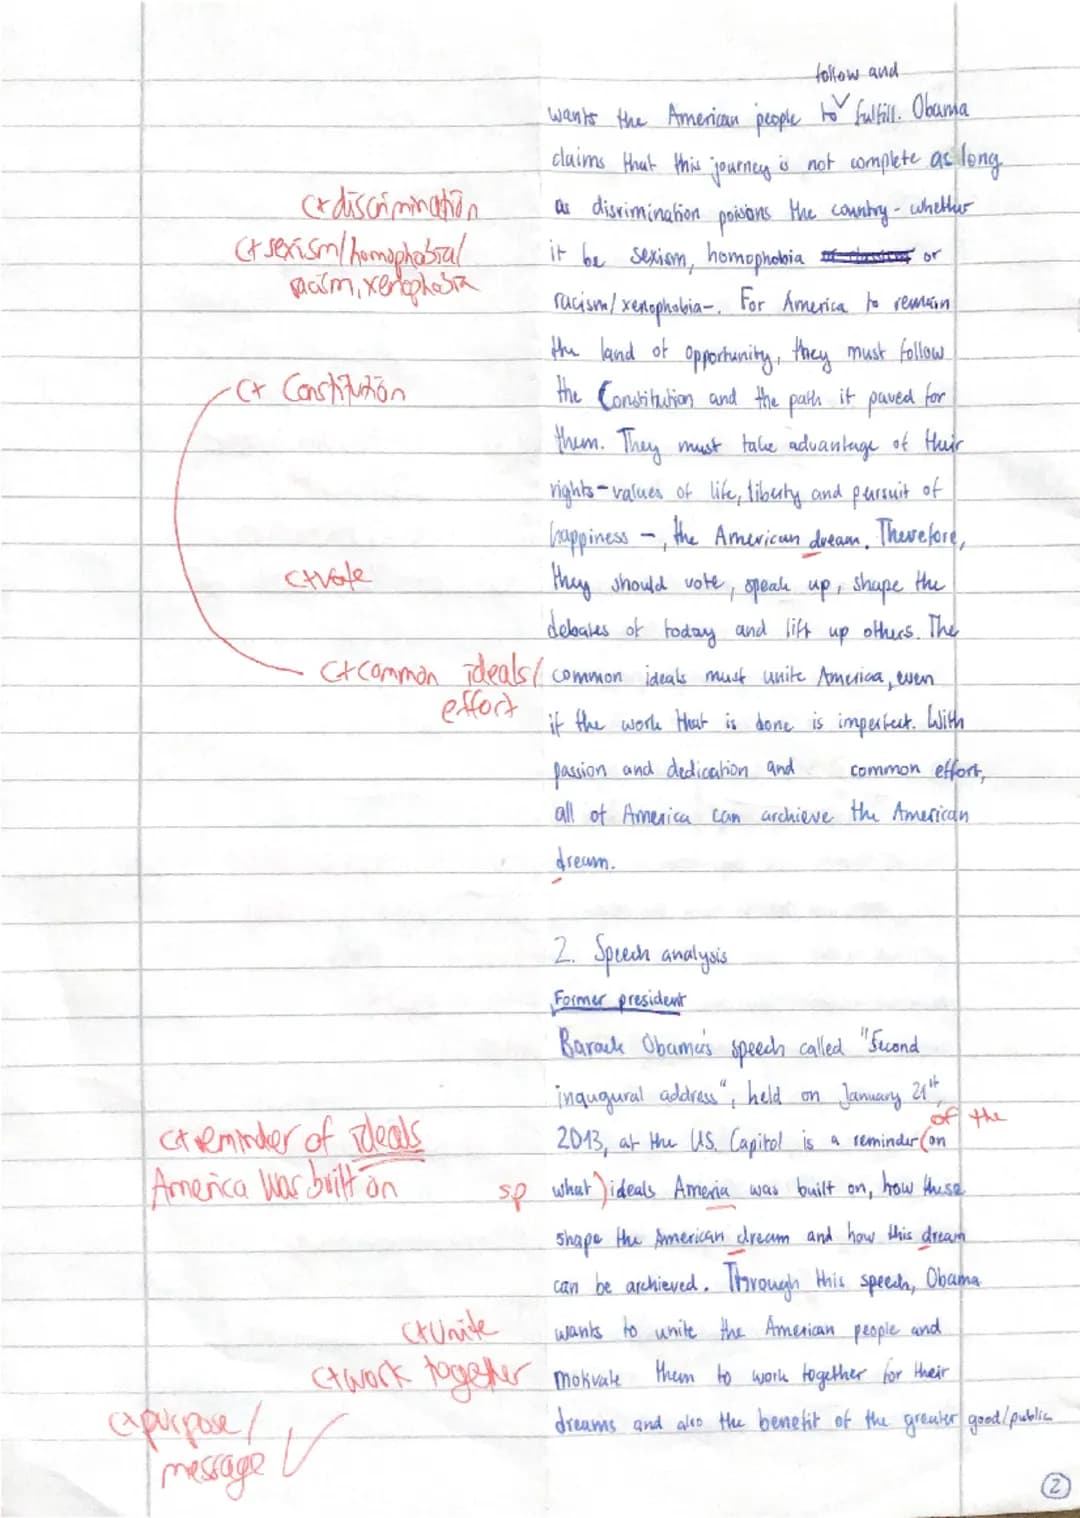 follow and
wants the American people to fulfill. Obama
claims that this journey is not complete as long
C+ discrimination as disrimination poisons the country - whether
C+ sexism/homophobia/ it be sexism, homophobia or
racism, xenophobia racism/xenophobia-. For America to remain
the land of opportunity, they must follow
C+ Constitution the Constitution and the path it paved for
them. They must take advantage of their
rights - values of life, liberty and pursuit of
happiness -, the American dream. Therefore,
C+ vote they should vote, speak up, shape the
debates of today and lift up others. The
C+ common ideals/ common ideals must unite America, even
effort if the work that is done is imperfect. With
passion and dedication and common effort,
all of America can archieve the American
dream.
2. Speech analysis
Former president
Barack Obama's speech called "Second
inaugural address", held on January 21th,
of the
C+ reminder of ideals 2013, at the US. Capitol is a reminder (on
America was built on sp what) ideals Ameria was built on, how these
shape the American dream and how this dream
can be archieved. Through this speech, Obama
C+ Unite wants to unite the American people and
C+ work together motivate them to work together for their
C+ purpose/ dreams and also the benefit of the greater good/public
message
2